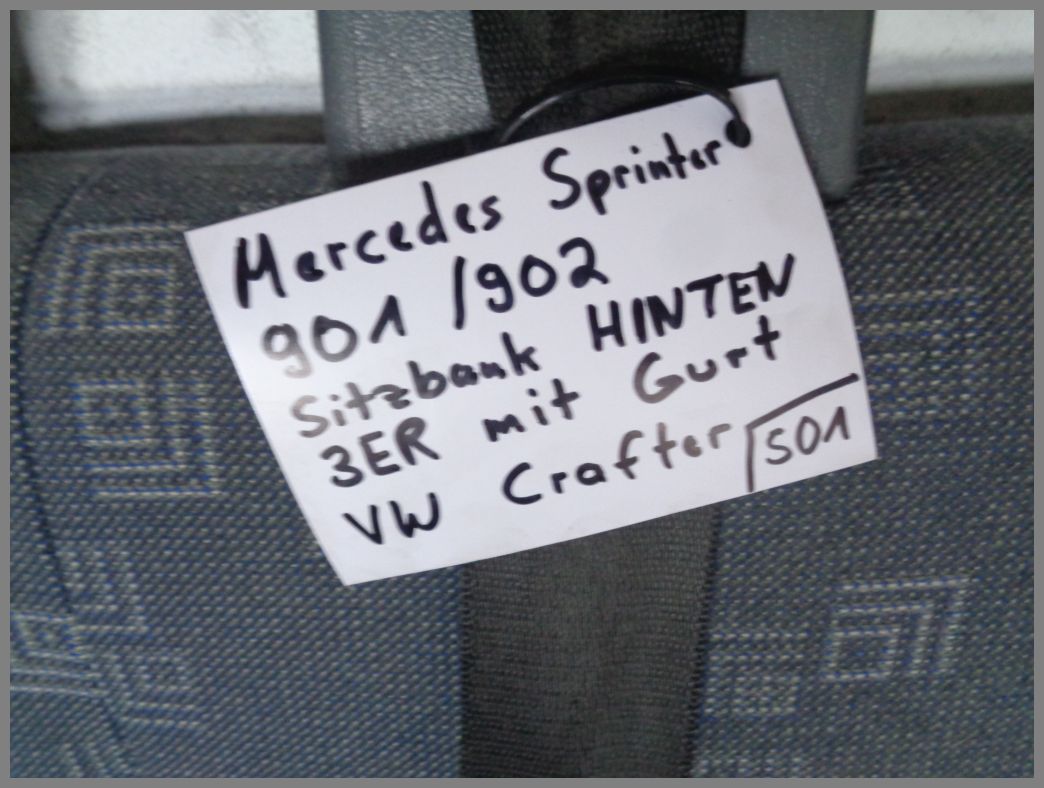 Mercedes Sprinter
901 / 902
Sitzbank HINTEN
3ER mit Gurt
VW Crafter 501